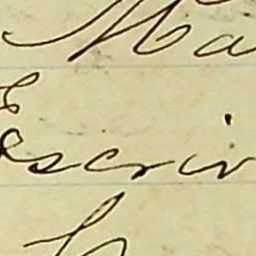 Ma
Escriv